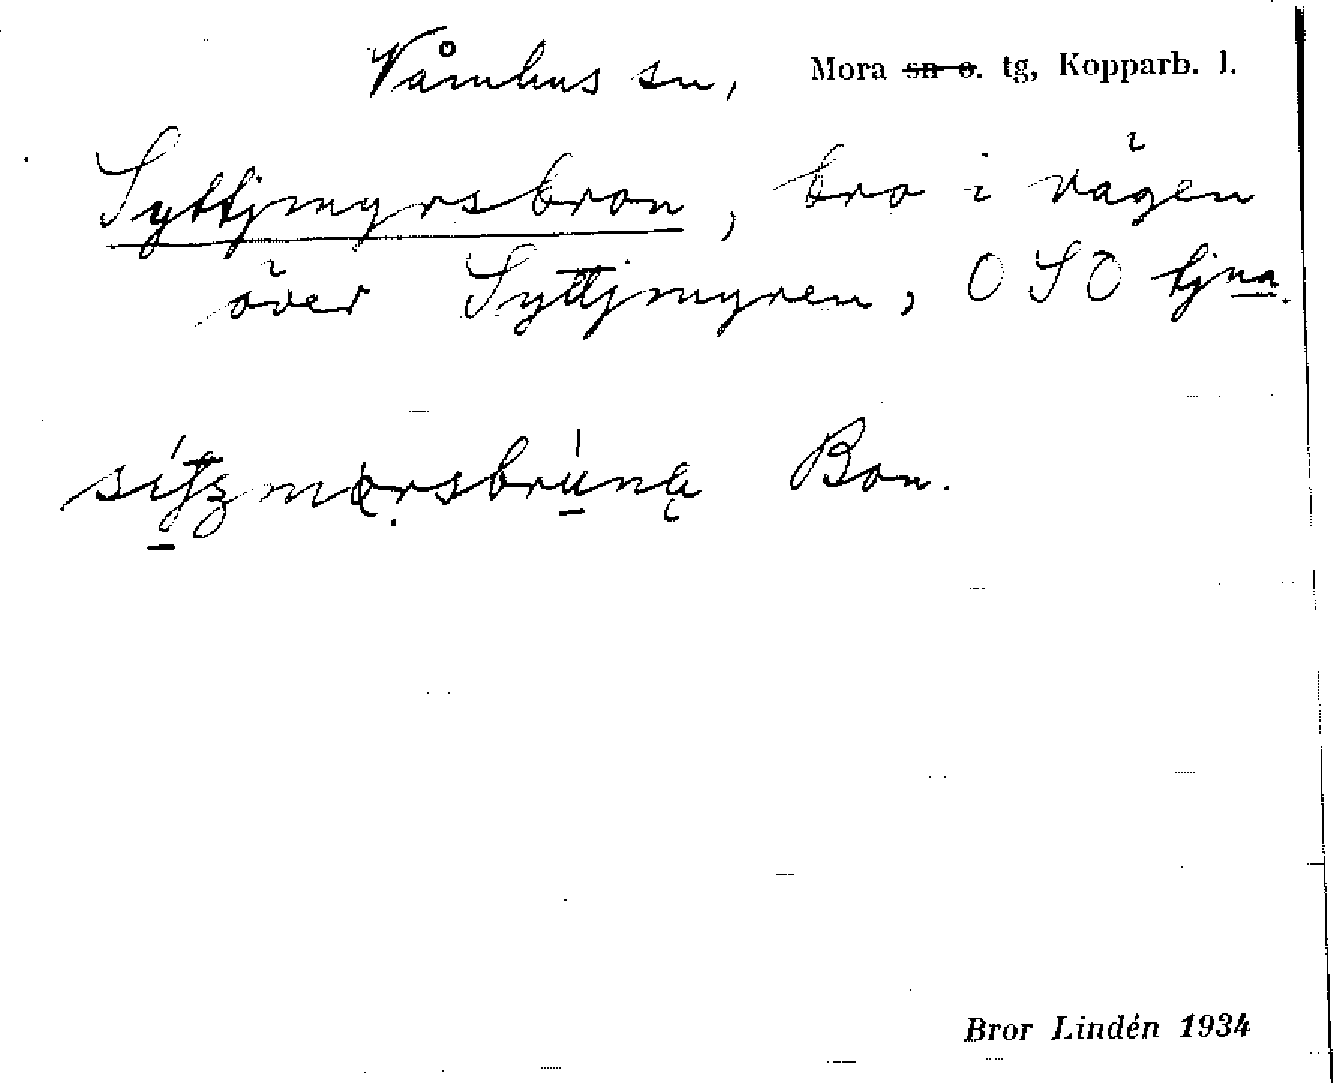 Våmhus sn, Mora ~~sn o.~~ tg, Kopparb. l.
Syttjmyrsbron, bro i vägen
över Syttjmyren, O S O hjna.
Bon.
Bror Lindén 1934